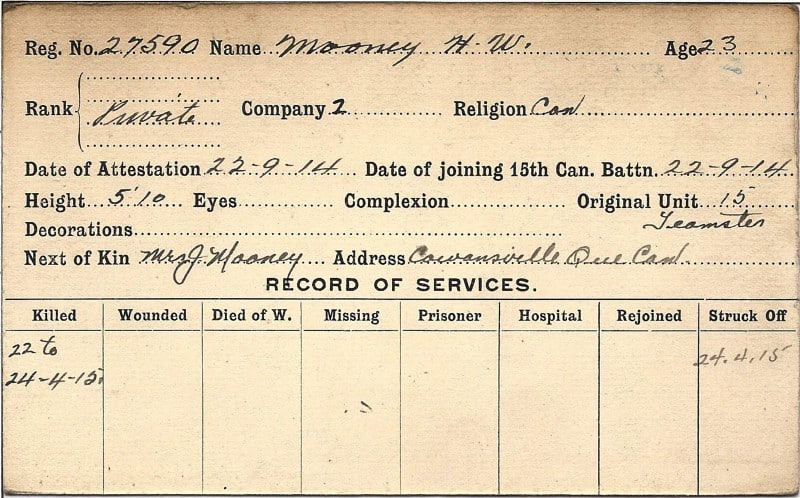 Reg. No. 27590 Name Mooney H. W. Age 23
Rank Private Company 2 Religion Can
Date of Attestation 22-9-14 Date of joining 15th Can. Battn. 22-9-14
Height 5'10 Eyes Complexion Original Unit 15
Decorations Teamster
Next of Kin Mrs J. Mooney Address Cowansville Que Can.
RECORD OF SERVICES.
Killed Wounded Died of W. Missing Prisoner Hospital Rejoined Struck Off
22 to 24.4.15
24-4-15.